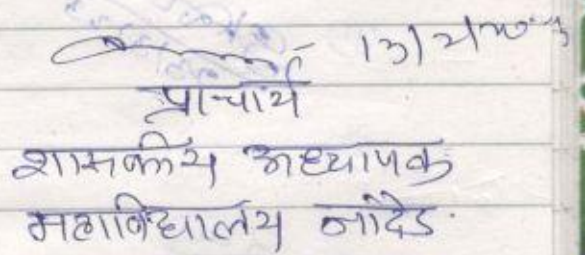 13/2/2023
प्राचार्य
शासकीय अध्यापक
महाविद्यालय नांदेड.